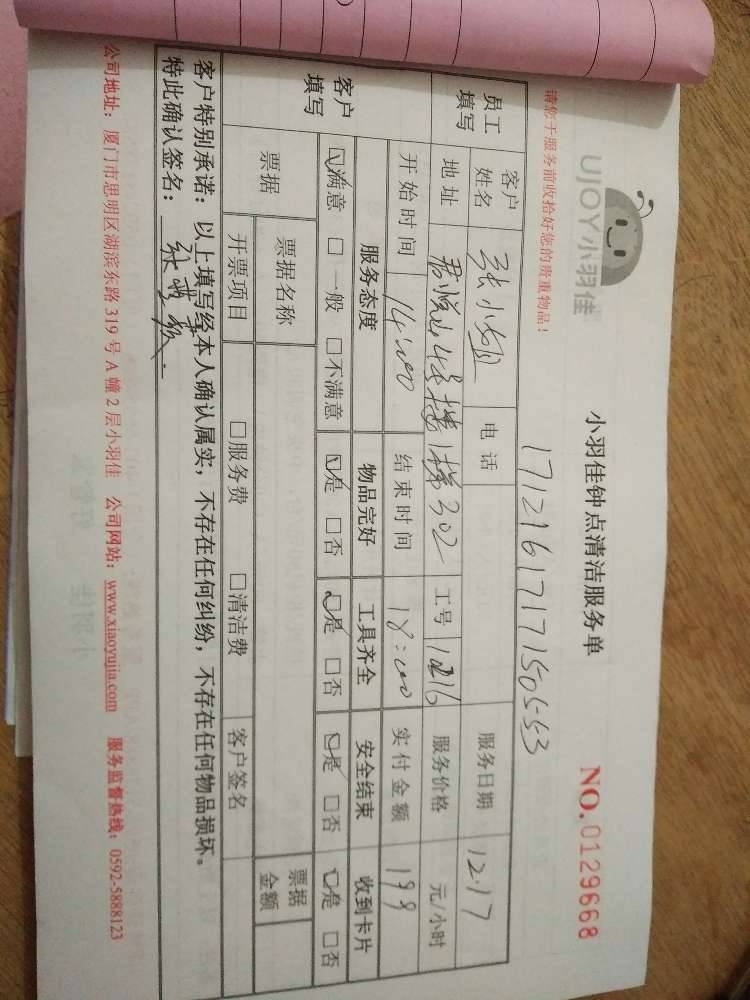 UJOY小羽佳
小羽佳钟点清洁服务单
NO.0129668
请您于服务前收拾好您的贵重物品！
17121617171505553
员工填写
客户姓名 张小姐 电话 服务日期 12.17
地址 君悦山4号楼1梯302 工号 1216 服务价格 元/小时
开始时间 14:00 结束时间 18:00 实付金额 199
客户填写
服务态度 物品完好 工具齐全 安全结束 收到卡片
☑满意 □一般 □不满意 ☑是 □否 ☑是 □否 ☑是 □否 ☑是 □否
票据 票据名称 票据金额
开票项目 □服务费 □清洁费 客户签名
客户特别承诺：以上填写经本人确认属实，不存在任何纠纷，不存在任何物品损坏。
特此确认签名：
公司地址：厦门市思明区湖滨东路319号A幢2层小羽佳 公司网站：www.xiaoyujia.com 服务监督热线：0592-5888123